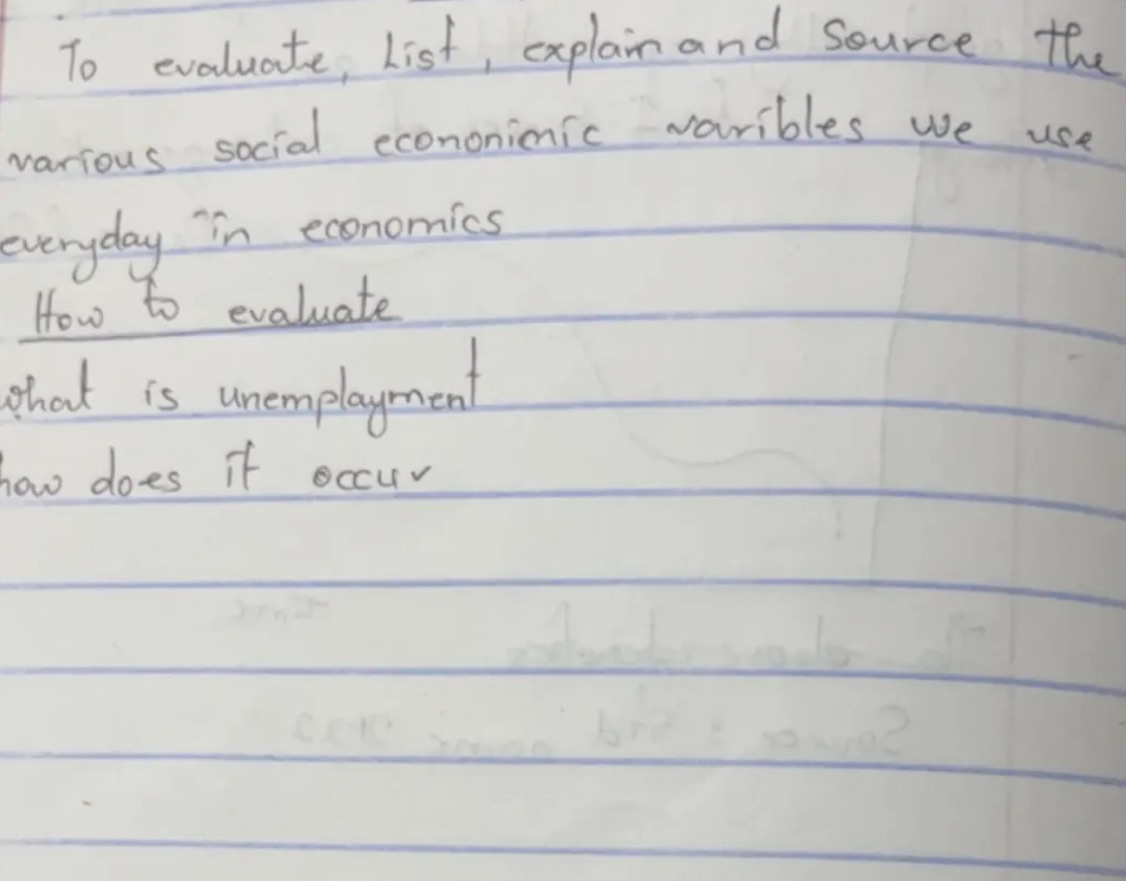 To evaluate, List, explain and source the
various social econonimic varibles we use
everyday in economics
How to evaluate
what is unemplayment
how does it occur